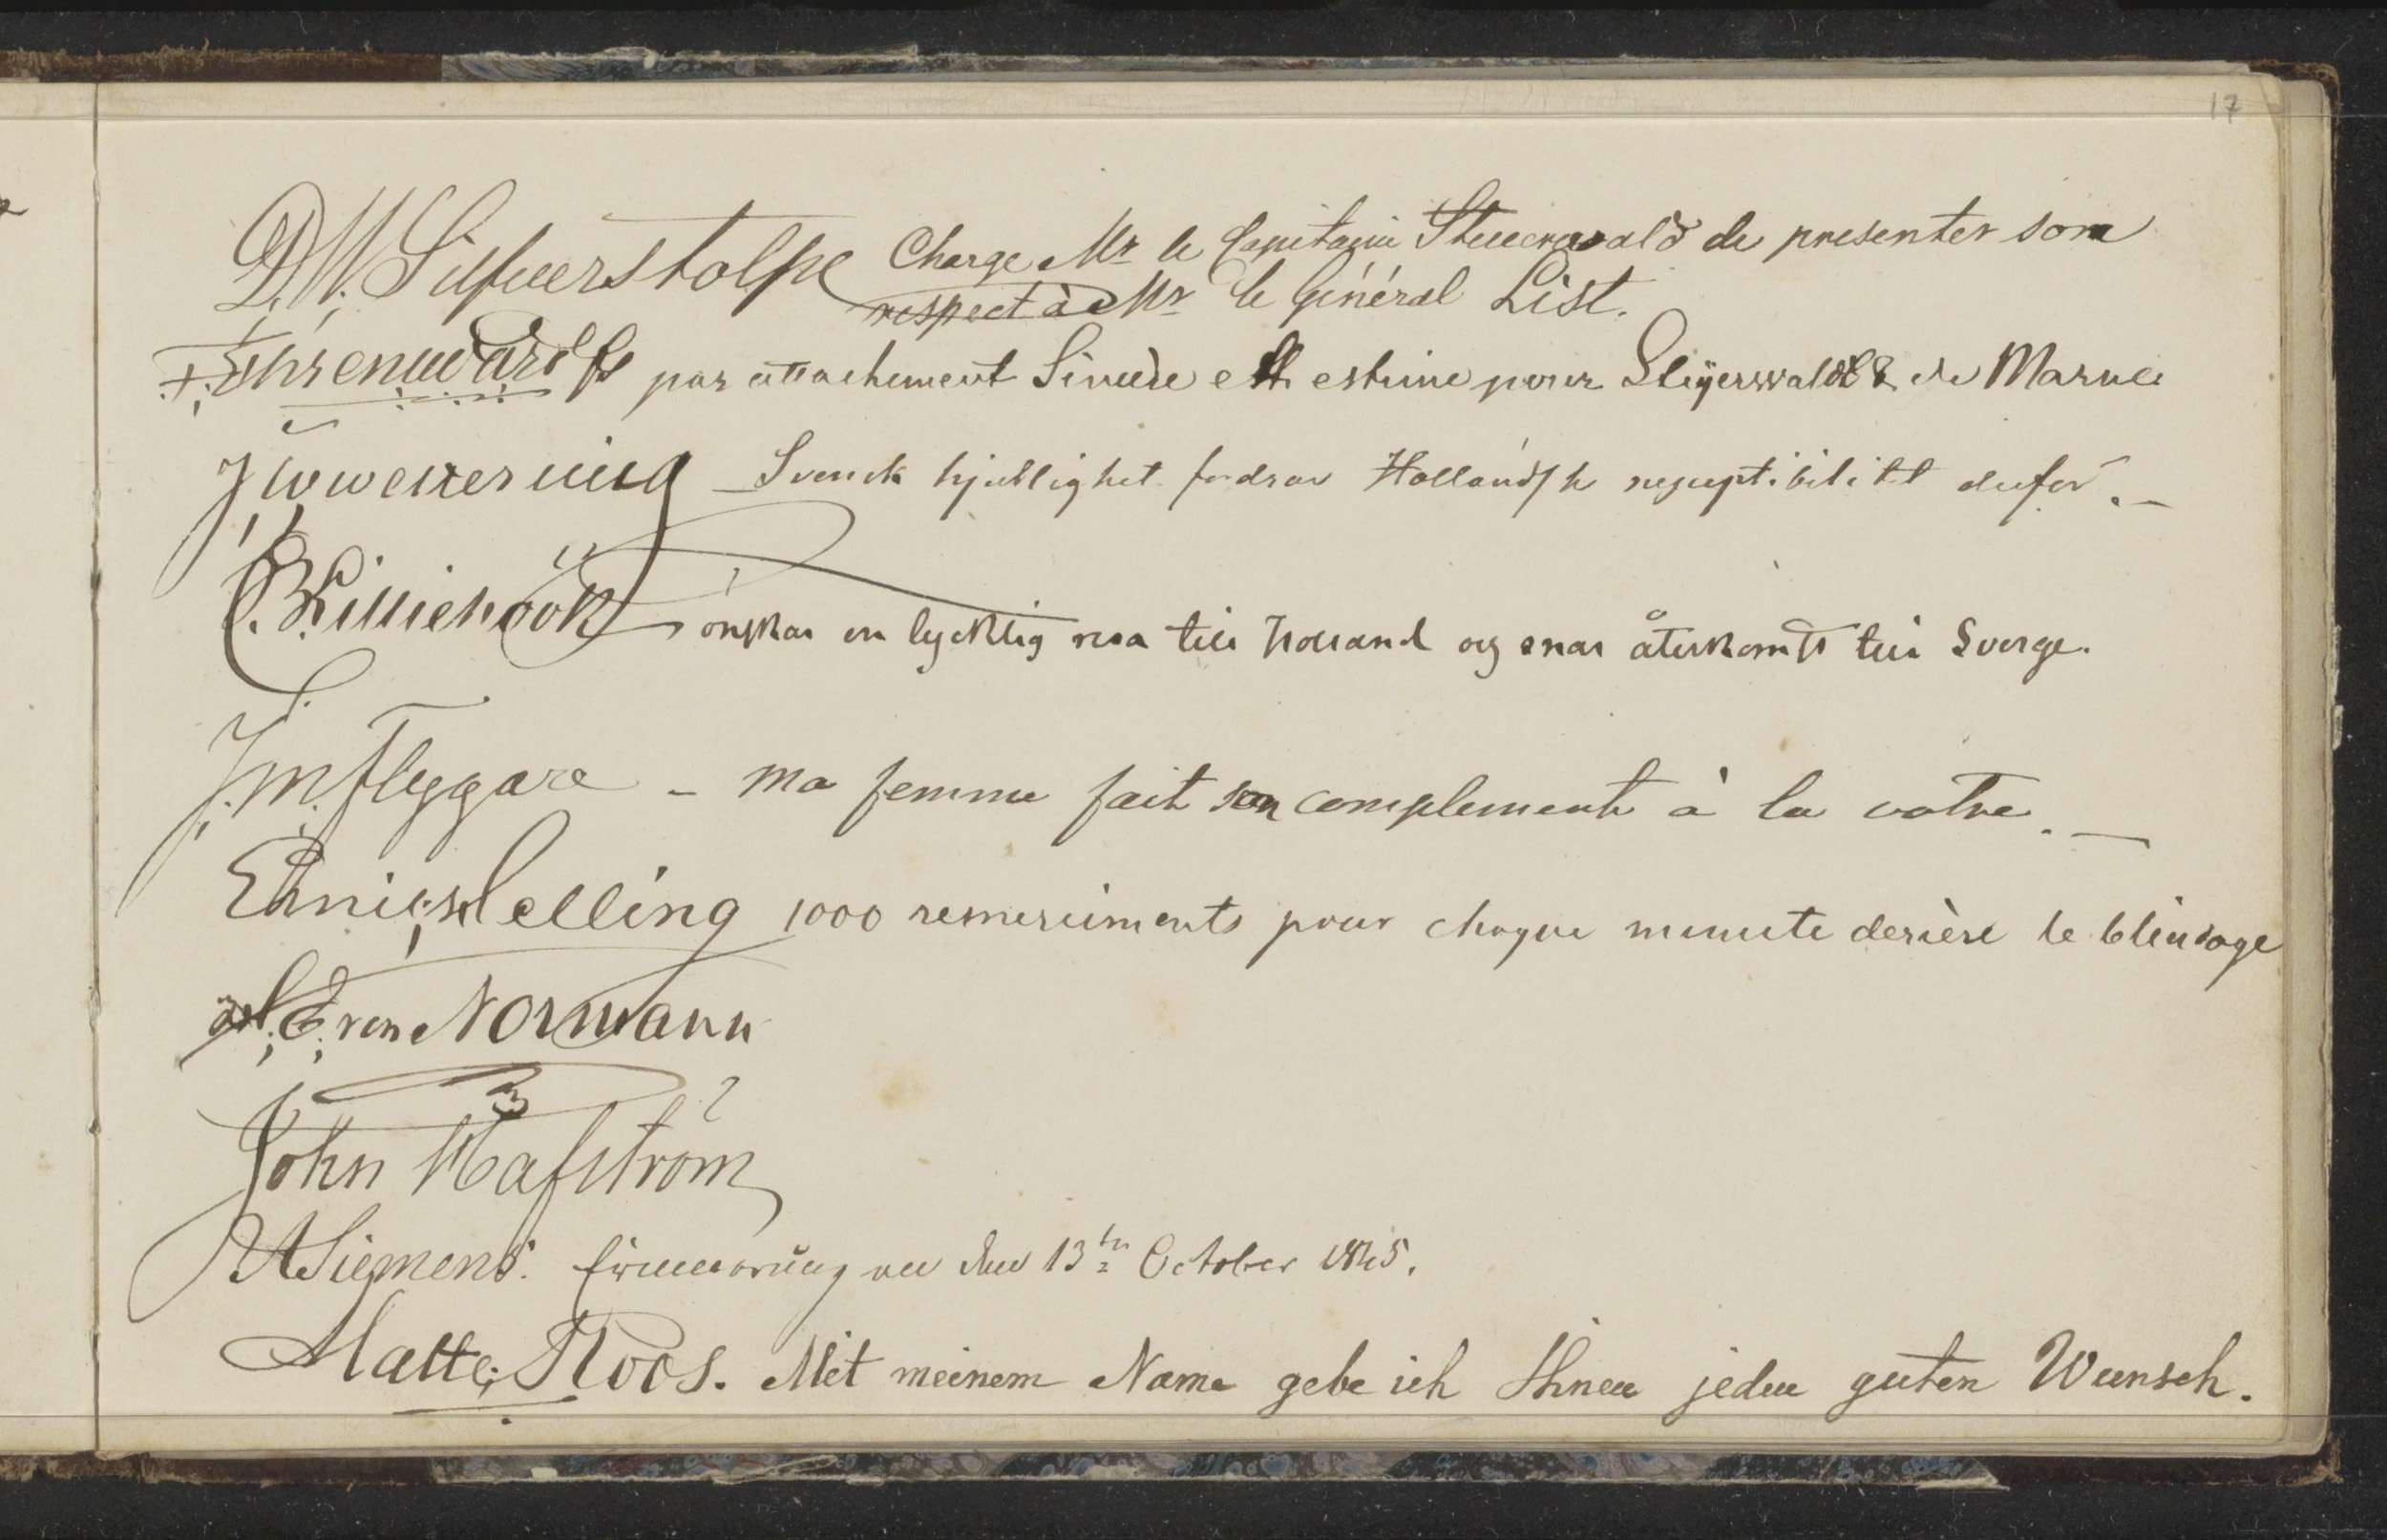 17
D.W. Silfverstolpe Charge Mr le Capitaine Steuerwald de presenter son
respect à Mr le Général List.
par attachement Sincère et estime pour
Svensk hjertlighet fordrar Hollandsk
C. B. Lilliehöök önskar en lycklig resa till Holland og snar återkomst till Sverge.
J. M. Flygare - ma femme fait son complement à la votre. -
Selling 1000 remerciments pour chaque minute derière le blindage
von Normann
John Hafström
A Siemens. Erinnerung an den 13ten October
Malte Roos. Mit meinem Name gebe ich Ihnen jeden guten Wunsch.